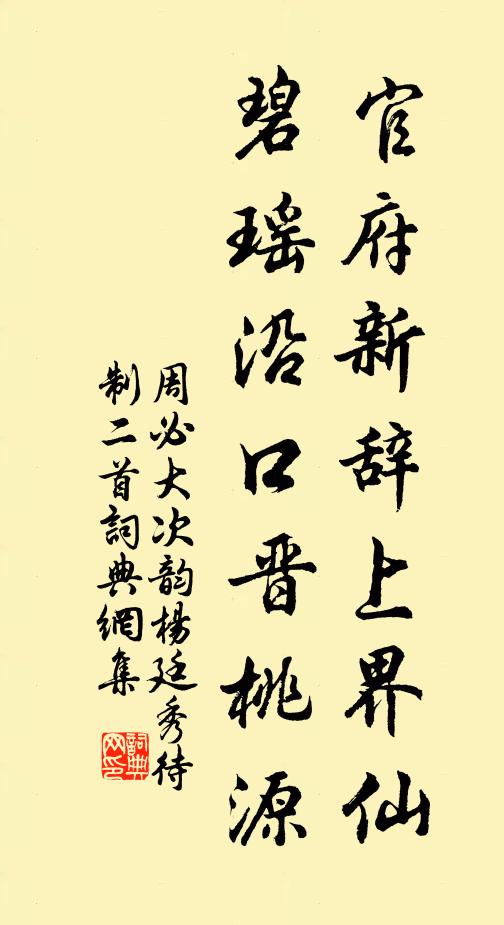 官府新辞上界仙
碧瑶沿口晋桃源
周必大次韵楊廷秀待
制二首詞典網集
詞典网印